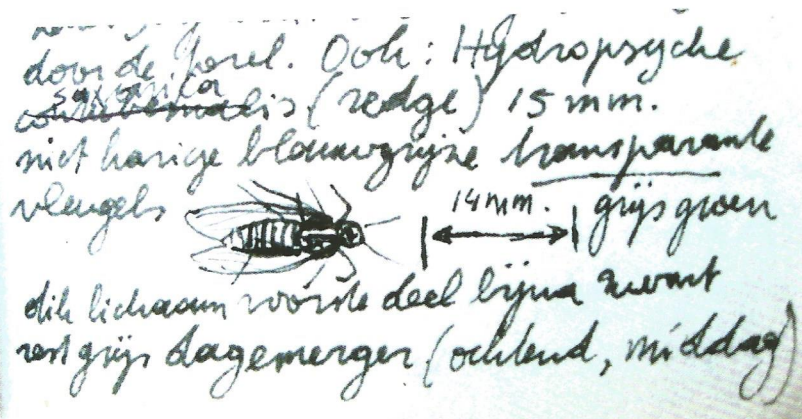 door de forel. Ook: Hydropsyche
saxonica
contubernalis (sedge) 15 mm.
niet harige blauwgrijze transparante
vleugels 14 mm. grijsgroen
dik lichaam voorste deel bijna zwart
rest grijs dagemerger (ochtend, middag)